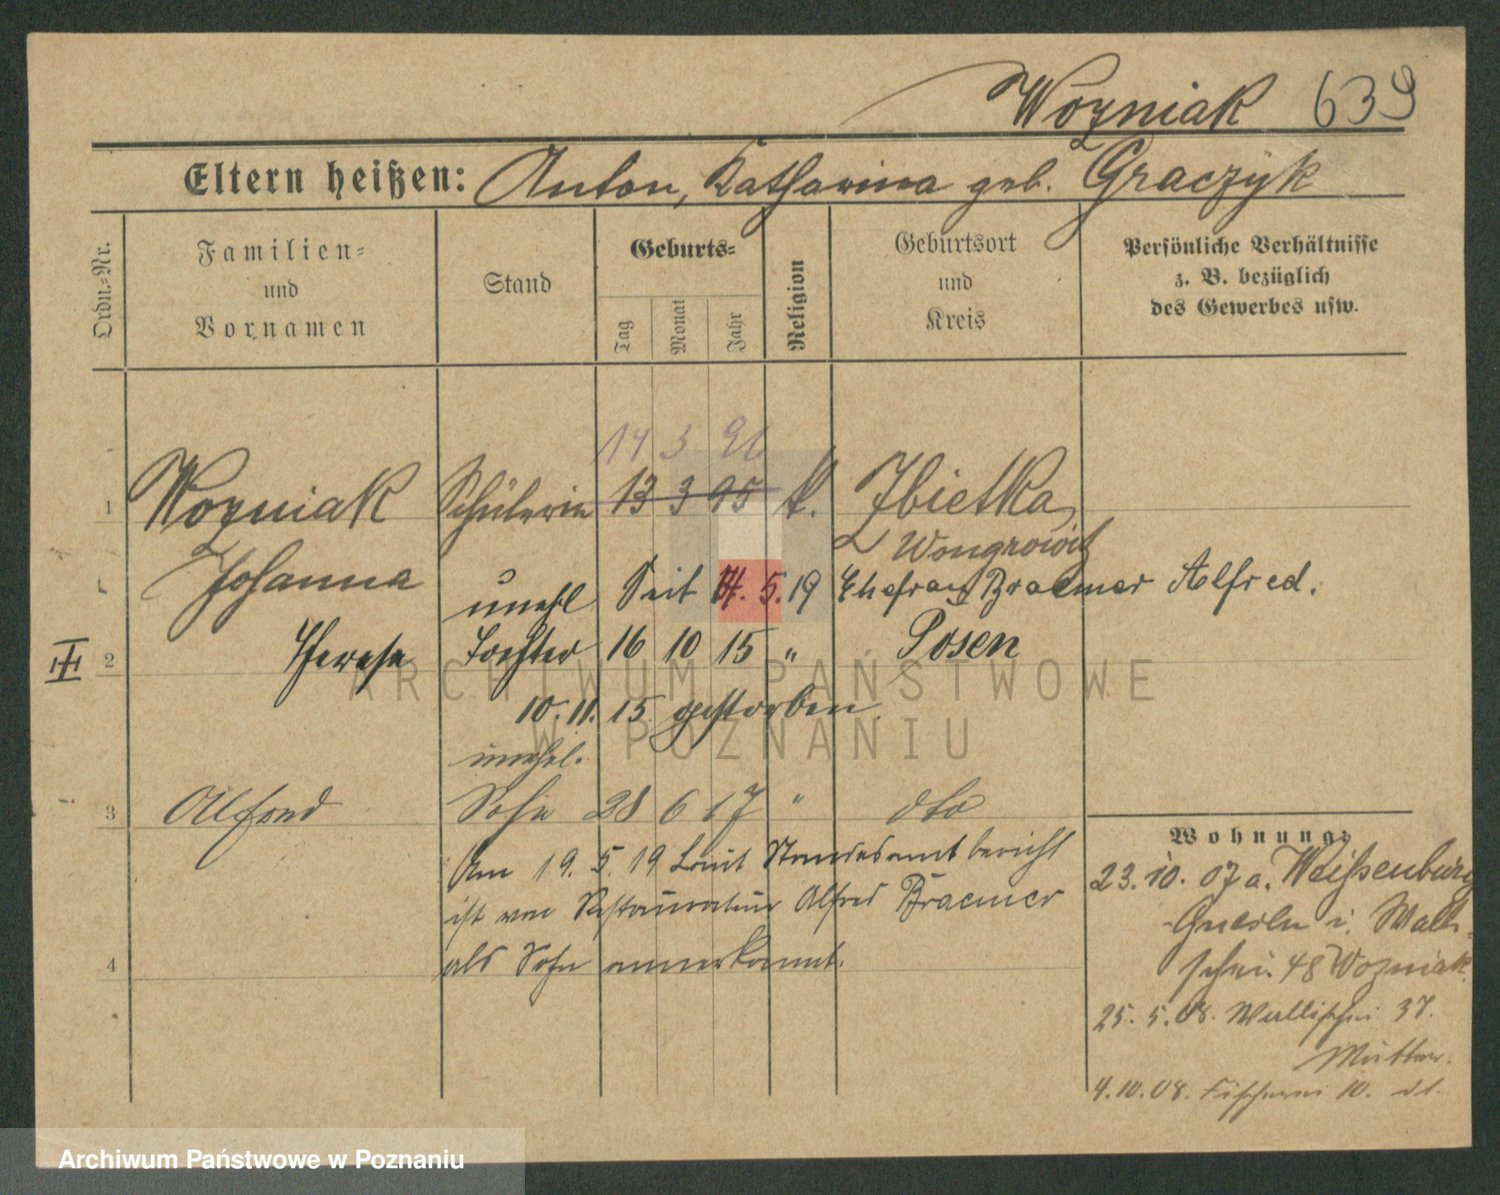 Wozniak 639
Eltern heißen: Anton, Katharina geb. Graczyk
Ordn.-Nr.
Familien-
und
Vornamen
Stand
Geburts-
Tag
Monat
Jahr
Religion
Geburtsort
und
Kreis
Persönliche Verhältnisse
z. B. bezüglich
des Gewerbes usw.
14 3 96
1 Wozniak Schülerin 13 3 95 k. Zbietka
Wongrowitz
Johanna
unehl Seit 5.19 Ehefrau Braemer Alfred.
III 2 Therese Tochter 16 10 15 " Posen
10. 11. 15 gestorben
unehel.
3 Alfred Sohn 28 6 17 " dto
Am 19. 5. 19 laut Standesamt bericht
ist von Restaurateur Alfred Braemer
als Sohn annerkannt.
4
Wohnung:
23. 10. 07 a. Weißenburg
-Gnesen i. Walli-
schei. 48 Wozniak
25. 5. 08. Wallischei 37.
Mutter.
4. 10. 08. Fischerei 10. dt.
ARCHIWUM PAŃSTWOWE
W POZNANIU
Archiwum Państwowe w Poznaniu